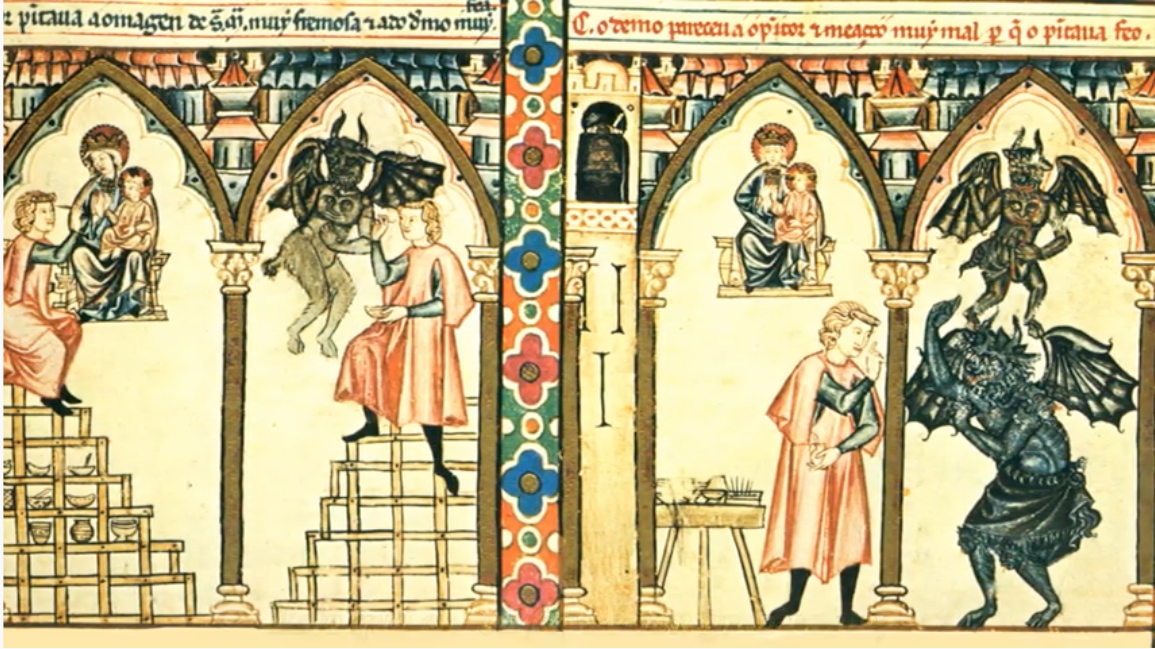 r pītaua aomagen de S̃. M̃. muy fremosa ⁊ ado d̃mo muy.
fea.
C. o demo pareceu a opītor ⁊ meaçoo muy mal p̲ q̃ o pītaua feo.